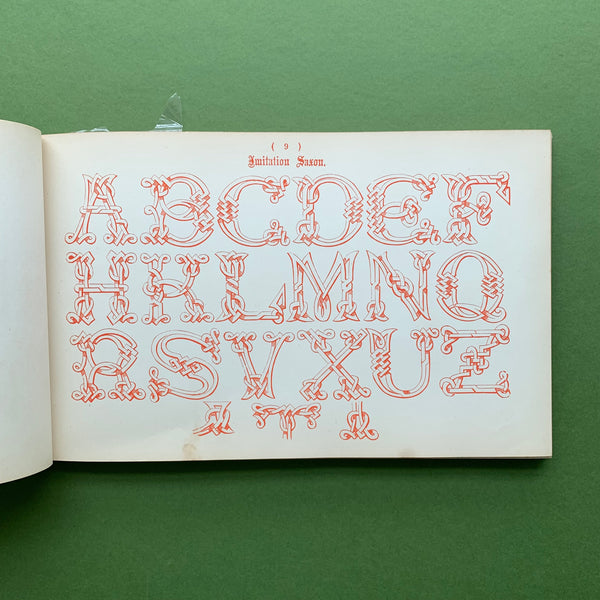 ( 9 )
Imitation Saxon.
ABCDEF
HKLMNO
RSVXUZ